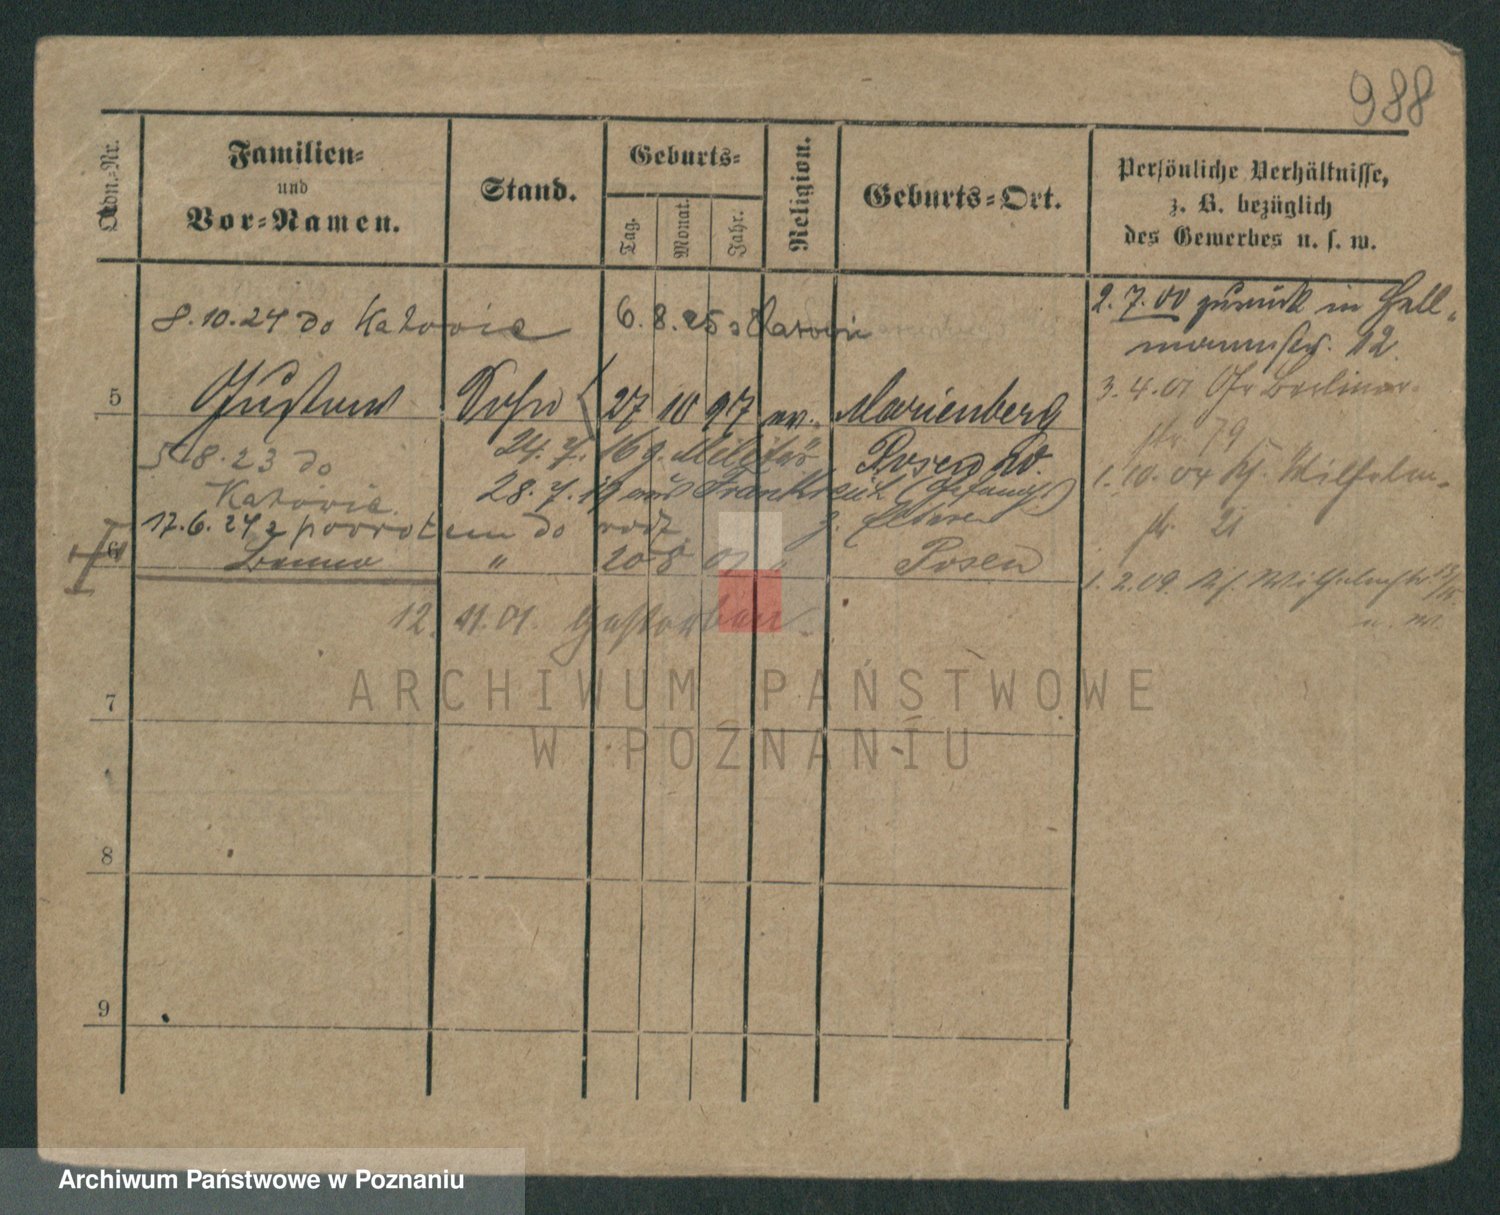 988
Ordn.-Nr.
Familien-
und
Vor-Namen.
Stand.
Geburts-
Tag.
Monat.
Jahr.
Religion.
Geburts-Ort.
Persönliche Verhältnisse,
z. B. bezüglich
des Gewerbes u. s. w.
8.10.24 do Katovic 6.8.25 z Katowic
2.7.00 zurück in Hell-
mannstr. 12.
5 Gustav Sohn 27 10 97 ev. Marienberg
3.4.01 Gr Berliner-
str. 79
24.7.16 z. Militär Posen W.
5.8.23 do
Katovic.
28.7.19 aus Frankreich (Gefangsch)
z. Eltern
1.10.04 Kl. Wilhelm-
str. 21
17.6.24 z povrotem do rodz.
6 Benno " 20 8 01 " Posen
1.2.09. Kl. Wilhelmstr
12.11.01. Gestorben.
7
8
9
ARCHIWUM PAŃSTWOWE
W POZNANIU
Archiwum Państwowe w Poznaniu